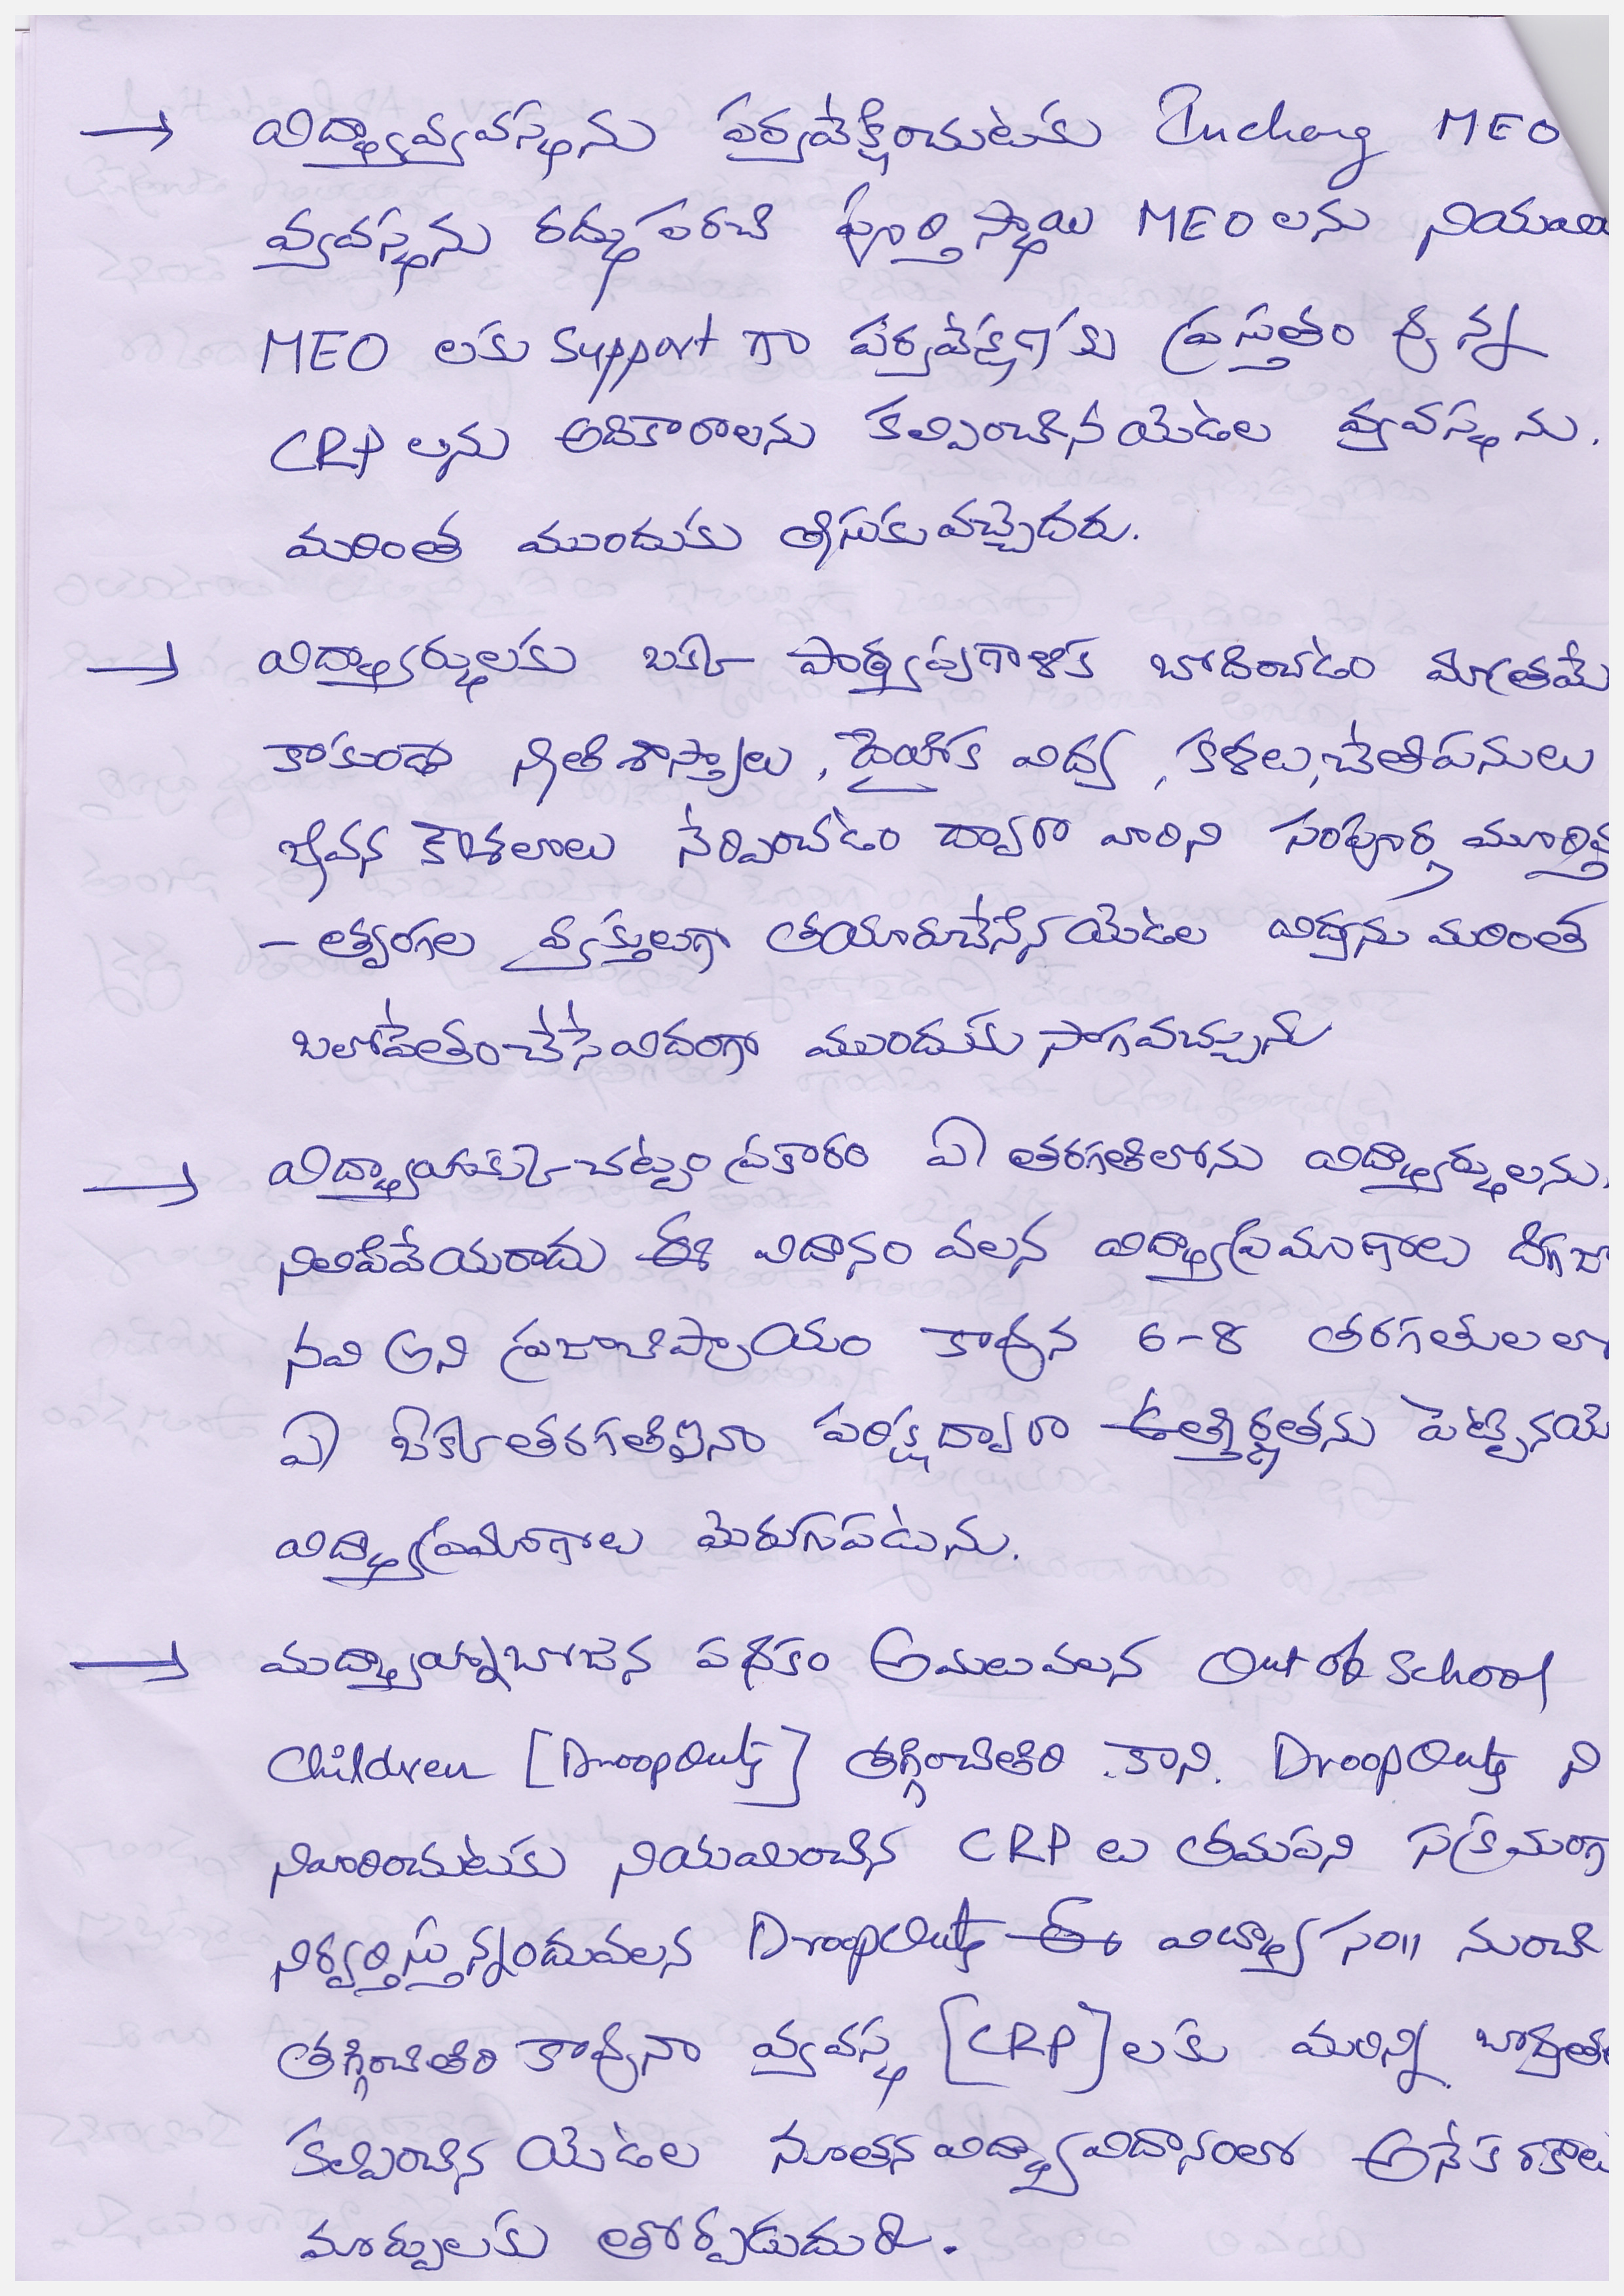 → విద్యావ్యవస్థను పర్యవేక్షించుటకు Incharg MEO
వ్యవస్థను రద్దుపరచి పూర్తిస్థాయి MEO లను నియమి
MEO లకు support గా పర్యవేక్షణకు ప్రస్తుతం ఉన్న
CRP లను అదికారాలను కల్పించిన యెడల వ్యవస్థను.
మరింత ముందుకు తీసుకువచ్చెదరు.
→ విద్యార్థులకు ఒక్క పాఠ్యప్రణాళిక బోదించడం మాత్రమే
కాకుండా నీతిశాస్త్రాలు, దైహిక విద్య, కళలు, చేతిపనులు
జీవన కౌశలాలు నేర్పించడం ద్వారా వారిని సంపూర్ణ మూర్తి
- త్వంగల వ్యక్తులుగా తయారుచేసిన యెడల విద్యను మరింత
బలోపేతం చేసే విదంగా ముందుకు సాగవచ్చును
→ విద్యాహక్కు చట్టం ప్రకారం ఏ తరగతిలోను విద్యార్థులను.
నిలిపివేయరాదు ఈ విదానం వలన విద్యాప్రమాణాలు దిగజా
నవి అని ప్రజాభిప్రాయం కావున 6-8 తరగతులలో
ఏ ఒక్క తరగతిఐనా పరీక్షద్వారా ఉత్తీర్ణతను పెట్టినయె
విద్యాప్రమాణాలు మెరుగుపడును.
→ మద్యాహ్నబోజన పథకం అమలువలన Out of School
Children [DroopOuts] తగ్గించితిరి. కాని. DroopOuts ని
నివారించుటకు నియమించిన CRP లు తమపని సక్రమంగా
నిర్వర్తిస్తున్నందువలన DroopOuts ఈ విద్యా సం॥ నుంచి
తగ్గించితిరి కావునా వ్యవస్థ [CRP] లకు మరిన్ని బాద్యతలు
కల్పించిన యెడల నూతన విద్యావిదానంలో అనేక రకాల
మార్పులకు తోర్పడుదురు.